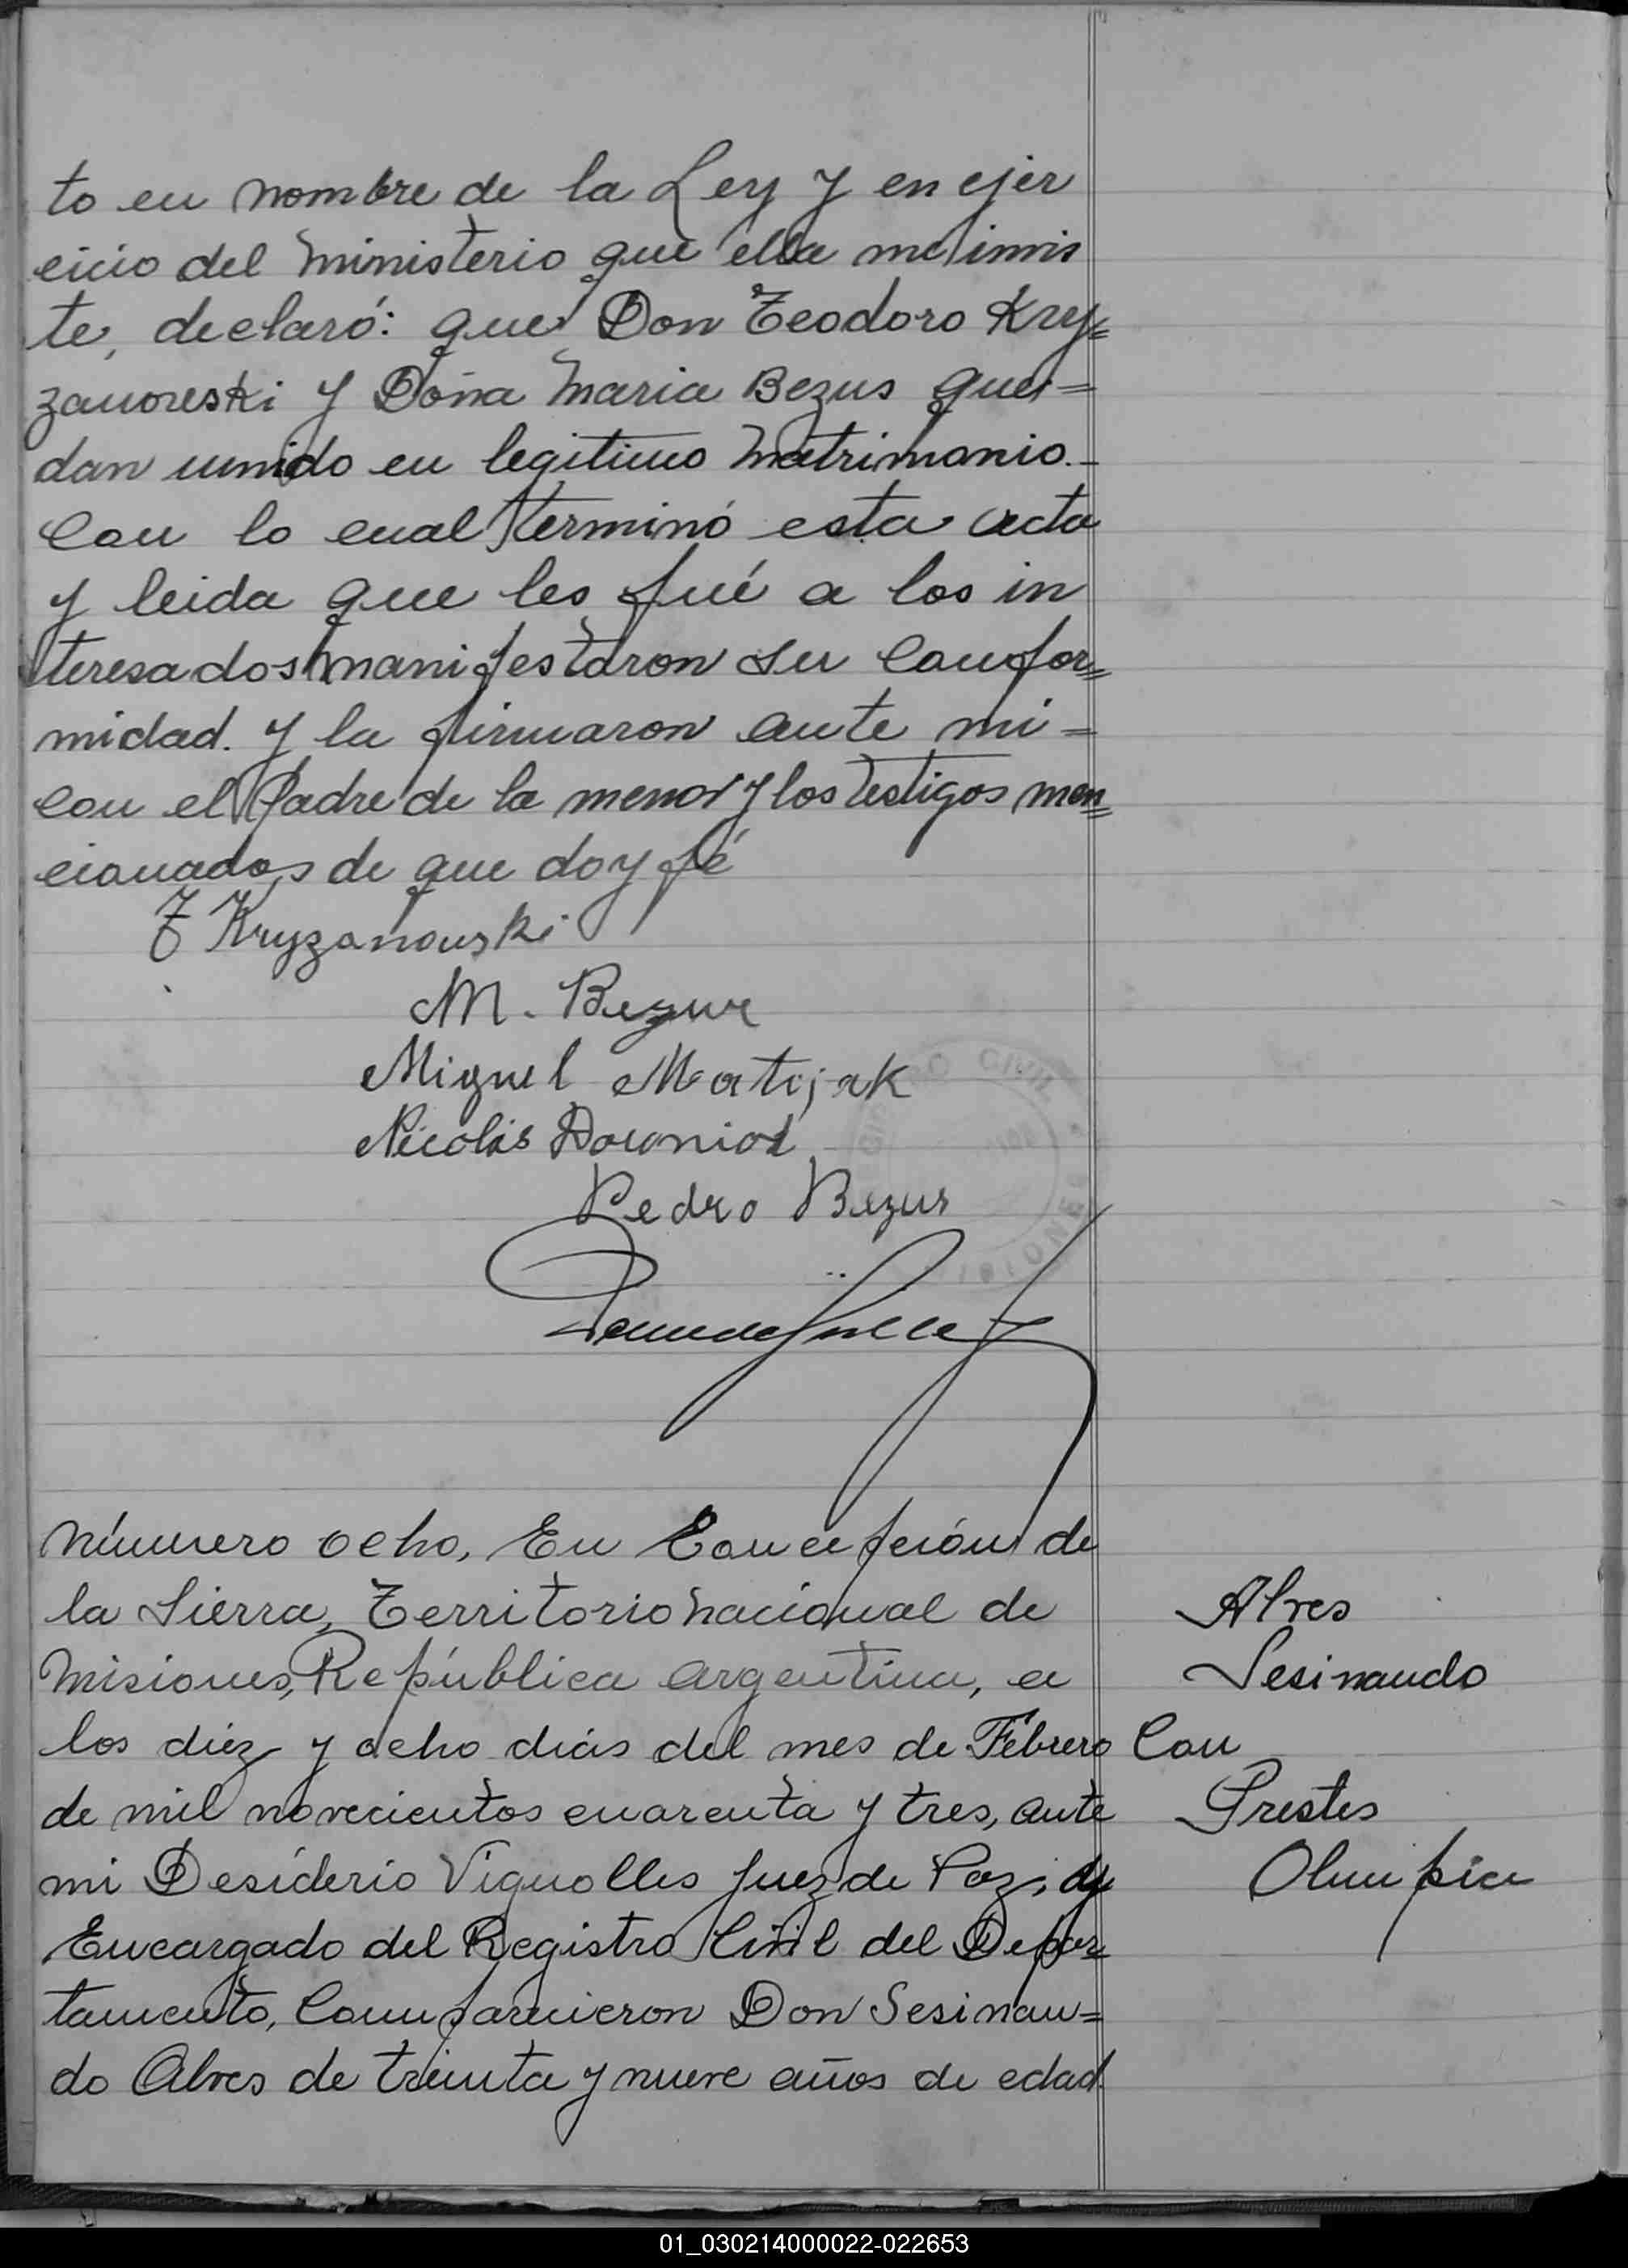 to en nombre de la Ley y en ejer
cicio del ministerio que ella me invis
te, declaró: que Don Teodoro Kry=
zanoweski y Doña Maria Bezus que=
dan unido en legitimo matrimonio.-
Con lo cual terminó esta acta
y leida que les fué a los in
teresados manifestaron su confor=
midad. y la firmaron ante mi=
con el Padre de la menor y los testigos men=
cionados de que doy fé
T Kryzanouski
M. Bezus
Miguel Matijak
Nicolás
REGISTRO CIVIL
Pedro Bezus
MISIONES
número ocho, En Concepción de
la Sierra, Territorio nacional de
Alves
Misiones, República Argentina, a
Sesinando
los diez y ocho dias del mes de Febrero
Con
de mil novecientos cuarenta y tres, ante
Prestes
mi Desiderio Vignolles Juez de Paz, y
Olimpia
Encargado del Registro Civil del Depar
tamento, Comparecieron Don Sesinan=
do Alves de treinta y nueve años de edad.
01_030214000022-022653